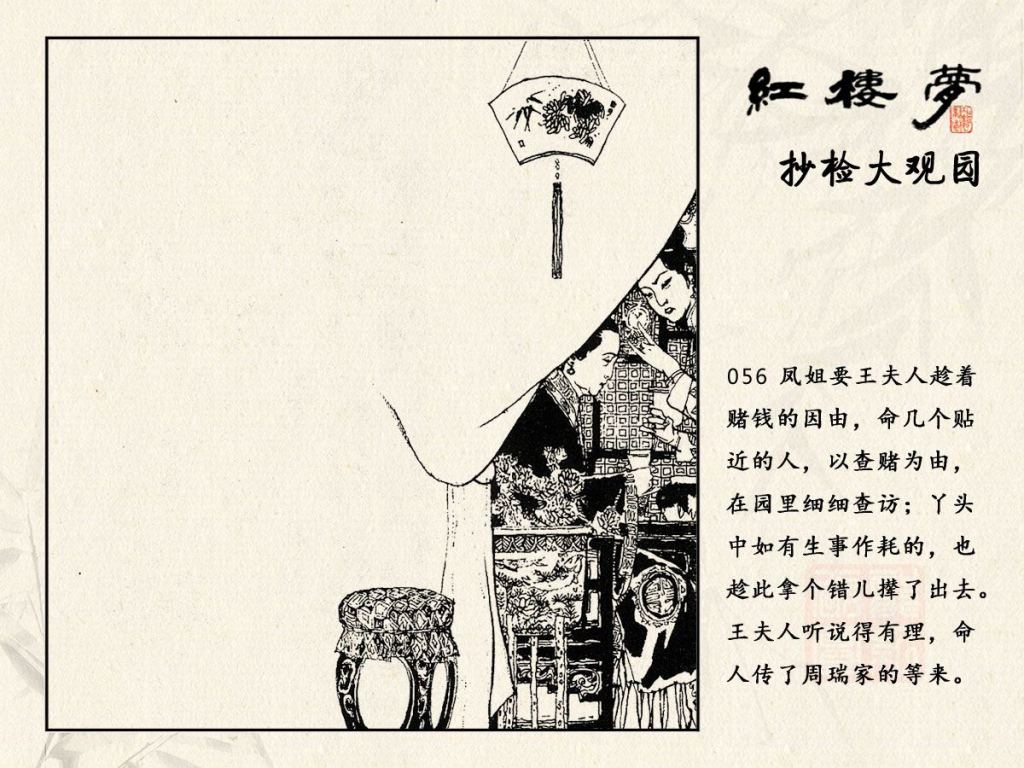 紅樓夢
抄检大观园
056 凤姐要王夫人趁着
赌钱的因由，命几个贴
近的人，以查赌为由，
在园里细细查访；丫头
中如有生事作耗的，也
趁此拿个错儿撵了出去。
王夫人听说得有理，命
人传了周瑞家的等来。